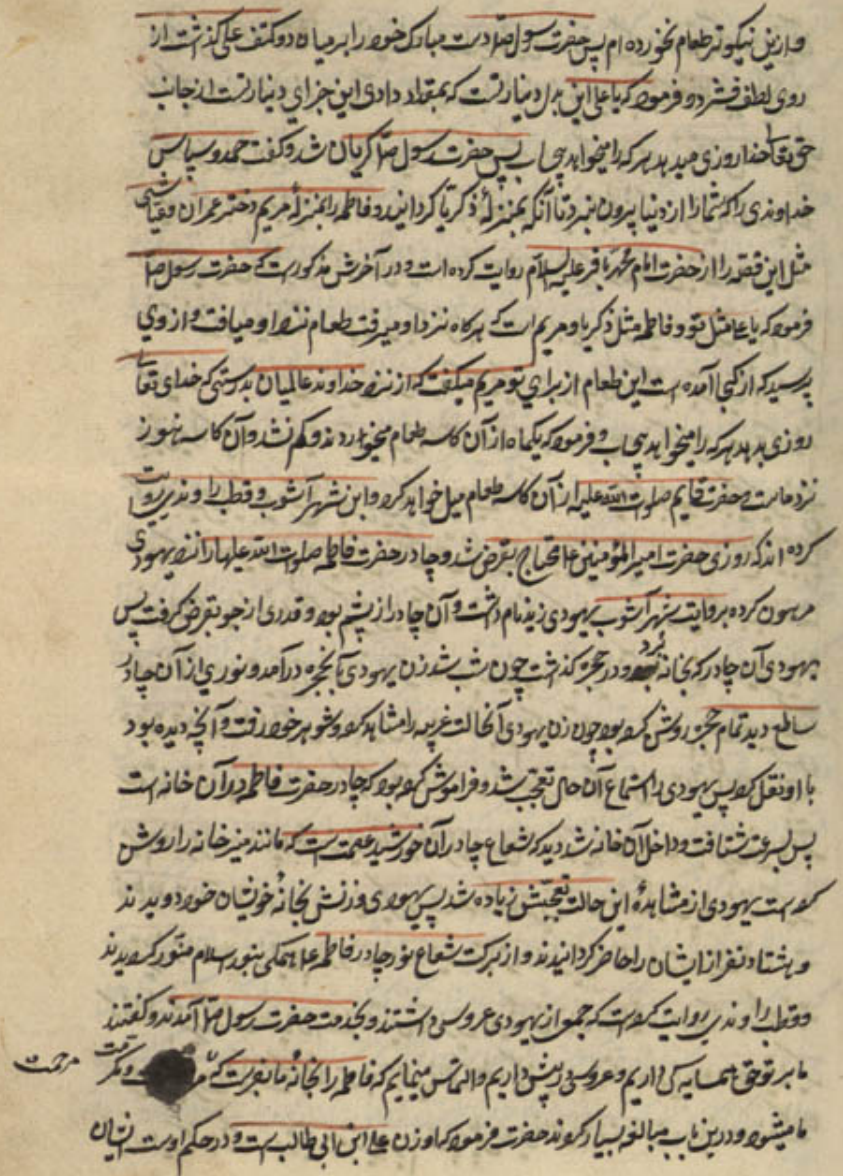 و ازین نیکوتر طعام نخورده ام پس حضرت رسول ص دست مبارک خود را بر میان دو کتف علی گذاشت از
روی لطف فشرد و فرمود که یا علی این بدل دینار تست که بمقداد دادی این جزای دینار تست از جانب
حق تعالی خدا روزی میدهد هر که را میخواهد بی حساب پس حضرت رسول ص گریان شد و گفت حمد و سپاس
خداوندی را که شما را از دنیا بیرون نبرد تا آنکه بمنزلهٔ ذکریا گردانید و فاطمه را بمنزلهٔ مریم دختر عمران و عیاشی
مثل این قصه را از حضرت امام محمد باقر علیه السلام روایت کرده است و در آخرش مذکور است که حضرت رسول ص
فرمود که یا علی مثل تو و فاطمه مثل ذکریا و مریم است که هر گاه نزد او میرفت طعام نزد او میافت و از وی
پرسید که از کجا آمده است این طعام از برای تو مریم میگفت که از نزد خداوند عالمیان بدرستی که خدای تعالی
روزی بدهد هر که را میخواهد بی حساب و فرمود که یکماه از آن کاسه طعام میخوردند و کم نشد و آن کاسه هنوز
نزد ماست و حضرت قایم صلوت الله علیه از آن کاسه طعام میل خواهد کرد و ابن شهر آشوب و قطب راوندی روایت
کرده اند که روزی حضرت امیر المؤمنین ع محتاج بقرض شد و چادر حضرت فاطمه صلوت الله علیها را نزد یهودی
مرهون کرده بروایت شهر آشوب یهودی زید نام داشت و آن چادر از پشم بود و قدری از جو بقرض گرفت پس
یهودی آن چادر که بخانه برد و در حجره گذاشت چون شب شد زن یهودی بآن حجره درآمد و نوری از آن چادر
ساطع دید تمام حجره روشن کرده بود چون زن یهودی آنحالت غریبه را مشاهده کرد و شوهر خود رفت و آنچه دیده بود
با او نقل کرد پس یهودی را استماع آن حال تعجب شد و فراموش کرده بود که چادر حضرت فاطمه در آن خانه است
پس بسرعت شتافت و داخل آن خانه شد دید که شعاع چادر آن خورشید عصمت است که مانند منیر خانه را روشن
کرده است یهودی از مشاهدهٔ این حالت تعجبش زیاده شد پس یهودی و زنش بخانهٔ خویشان خود دویدند
و هشتاد نفر از ایشان را حاضر گردانیدند و از برکت شعاع نور چادر فاطمه ع همگی بنور اسلام منور گردیدند
و قطب راوندی روایت کرده است که جمعی از یهودی عروسی داشتند و بخدمت حضرت رسول ص آمدند و گفتند
ما بر تو حق همسایه گی داریم و عروسی در پیش داریم و التماس مینمایم که فاطمه را بخانهٔ ما بفرست که
مرحمت
ما میشود و درین باب مبالغه بسیار کردند حضرت فرمود که او زن علی ابن ابی طالب است و در حکم اوست ایشان